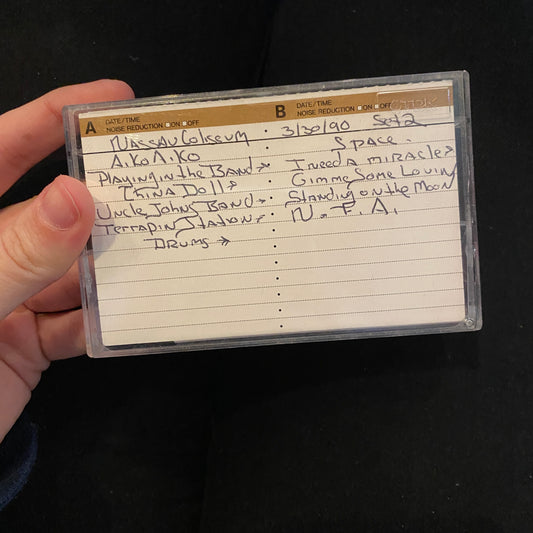 A DATE/TIME
NOISE REDUCTION □ON □OFF
NASSAU COLISEUM
AIKO AIKO
PLAYING IN THE BAND→
CHINA DOLL→
UNCLE JOHNS BAND→
TERRAPIN STATION→
DRUMS→
B DATE/TIME
NOISE REDUCTION □ON □OFF
3/30/90 Set 2
SPACE
I NEED A MIRACLE→
GIMME SOME LOVIN
STANDING ON THE MOON
N. F. A.